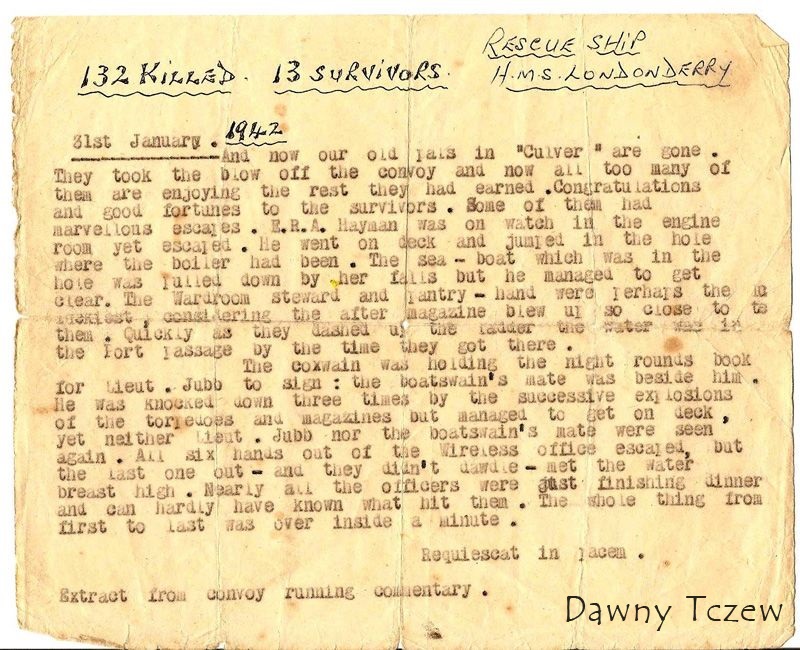 132 KILLED. 13 SURVIVORS.
RESCUE SHIP
H.M.S. LONDONDERRY
31st January . 1942
And now our old pals in "Culver " are gone .
They took the blow off the convoy and now all too many of
them are enjoying the rest they had earned .Congratulations
and good fortunes to the survivors . Some of them had
marvellous escapes . E.R.A. Hayman was on watch in the engine
room yet escaped . He went on deck and jumped in the hole
where the boiler had been . The sea - boat which was in the
hole was pulled down by her falls but he managed to get
clear. The Wardroom steward and pantry - hand were perhaps the
luckiest , considering the after magazine blew up so close to
them . Quickly as they dashed up the ladder the water was in
the port passage by the time they got there .
The coxwain was holding the night rounds book
for Lieut . Jubb to sign : the boatswain's mate was beside him .
He was knocked down three times by the successive explosions
of the torpedoes and magazines but managed to get on deck ,
yet neither Lieut . Jubb nor the boatswain's mate were seen
again . All six hands out of the Wireless office escaped, but
the last one out - and they didn't dawdle - met the water
breast high . Nearly all the officers were just finishing dinner
and can hardly have known what hit them . The whole thing from
first to last was over inside a minute .
Requiescat in pacem .
Extract from convoy running commentary .
Dawny Tczew